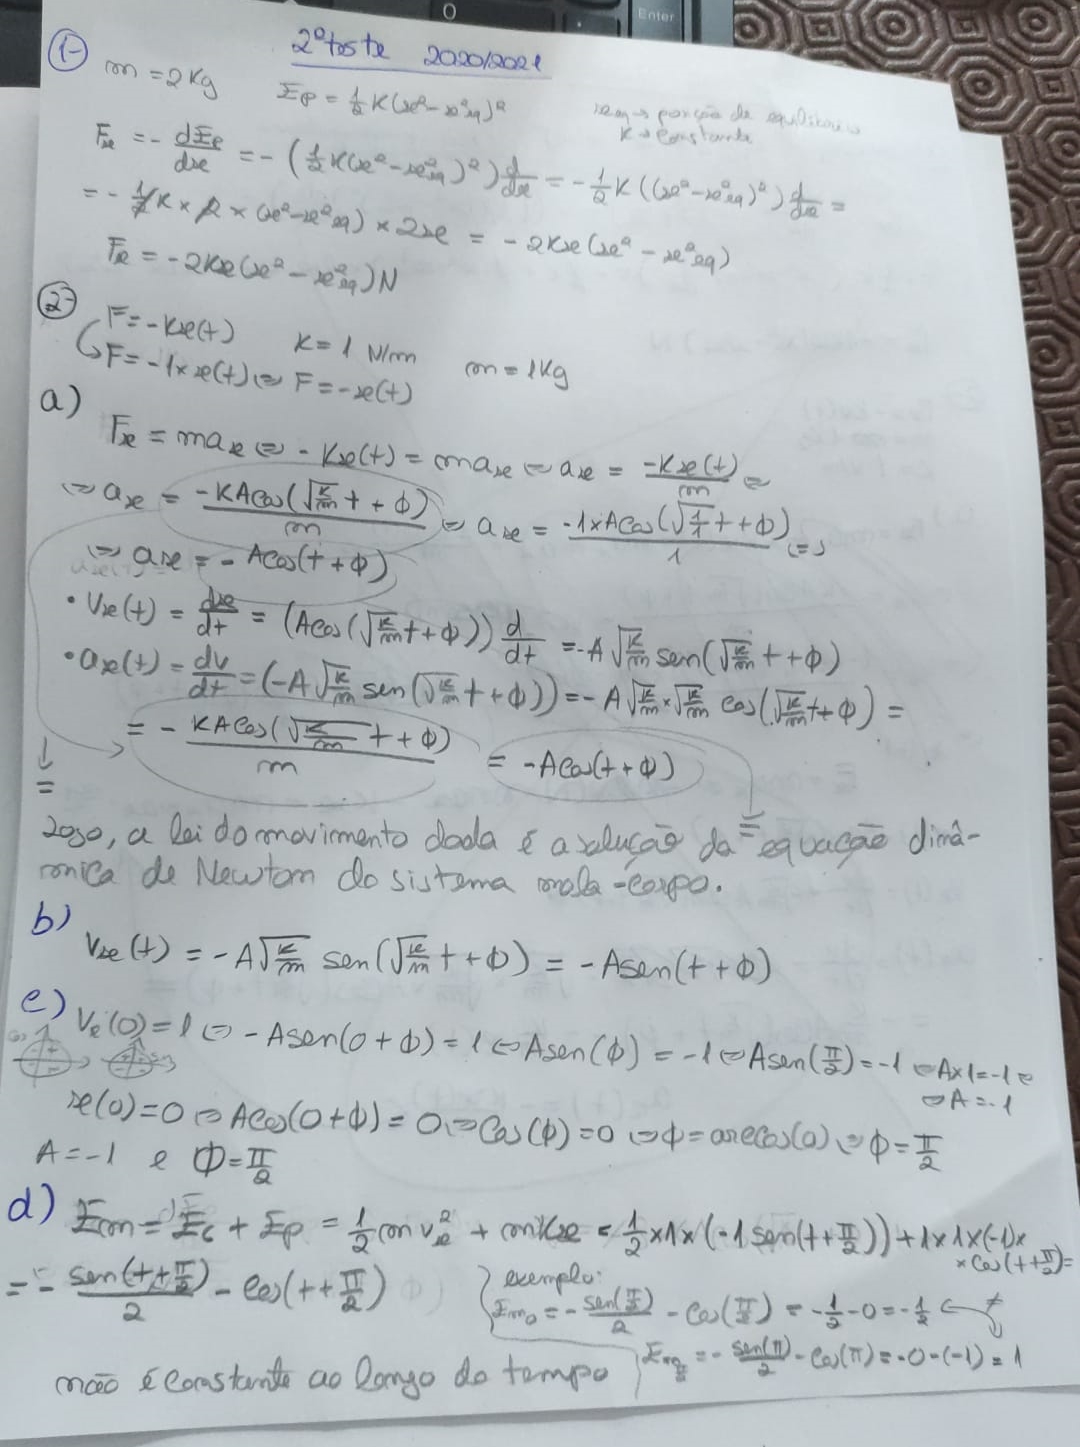 Enter
2º teste 2020/2021
1-
m = 2 Kg   Ep = ½ K(x² - x²eq)²   xeq → posição de equilíbrio
K → constante
Fx = - dEp/dx = - (½ K(x² - x²eq)²) d/dx = - ½ K ((x² - x²eq)²) d/dx =
= - ½ K × 2 × (x² - x²eq) × 2x = - 2Kx (x² - x²eq)
Fx = - 2Kx(x² - x²eq) N
2-
F = - Kx(t)   K = 1 N/m   m = 1 Kg
F = - 1 × x(t) ⇔ F = - x(t)
a)
Fx = max ⇔ - Kx(t) = max ⇔ ax = -Kx(t)/m ⇔
⇔ ax = -KAcos(√(K/m) t + ϕ)/m ⇔ ax = -1×Acos(√(1/1) t + ϕ)/1 ⇔
⇔ ax = - Acos(t + ϕ)
• Vx(t) = dx/dt = (Acos(√(K/m) t + ϕ)) d/dt = -A √(K/m) sen(√(K/m) t + ϕ)
• ax(t) = dv/dt = (-A √(K/m) sen(√(K/m) t + ϕ)) = - A √(K/m) × √(K/m) cos(√(K/m) t + ϕ) =
= - KAcos(√(K/m) t + ϕ)/m = -Acos(t + ϕ)
=
Logo, a lei do movimento dada é a solução da equação dinâ-
mica de Newton do sistema mola-corpo.
b)
Vx(t) = -A √(K/m) sen(√(K/m) t + ϕ) = - Asen(t + ϕ)
c)
Vx(0) = 1 ⇔ - Asen(0 + ϕ) = 1 ⇔ Asen(ϕ) = -1 ⇔ Asen(π/2) = -1 ⇔ A×1 = -1 ⇔
⇔ A = -1
x(0) = 0 ⇔ Acos(0 + ϕ) = 0 ⇔ Cos(ϕ) = 0 ⇔ ϕ = arccos(0) ⇔ ϕ = π/2
A = -1 e ϕ = π/2
d)
Em = Ec + Ep = ½ m vx² + mKx = ½ × 1 × (-1 sen(t + π/2)) + 1 × 1 × (-1) ×
× cos(t + π/2) =
= - sen(t + π/2)/2 - cos(t + π/2)
exemplo:
Em0 = - sen(π/2)/2 - cos(π/2) = - ½ - 0 = - ½ ≠
Emπ/2 = - sen(π)/2 - cos(π) = -0 - (-1) = 1
não é constante ao longo do tempo